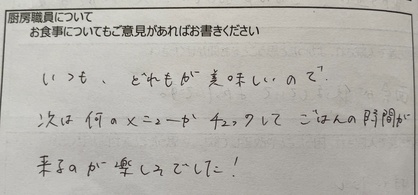 厨房職員について
お食事についてもご意見があればお書きください
いつも、どれもが美味しいので、
次は何のメニューかチェックして ごはんの時間が
来るのが楽しみでした!